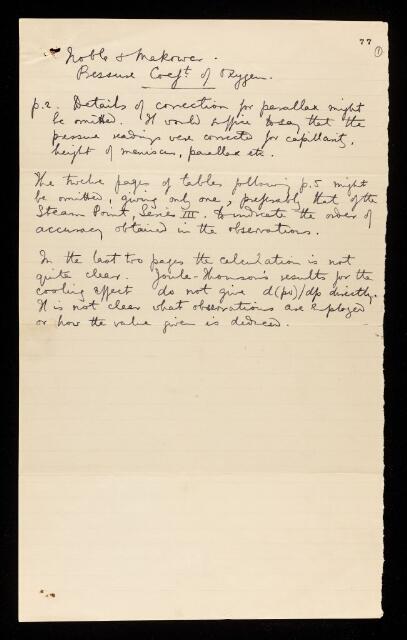 77
1
Noble & Makower.
Pressure Coeft. of Oxygen.
p.2. Details of correction for parallax might
be omitted. It would suffice to say that the
pressure readings were corrected for capillarity,
height of meniscus, parallax etc.
The twelve pages of tables following p.5 might
be omitted, giving only one, preferably that of the
Steam Point, Series III. to indicate the order of
accuracy obtained in the observations.
In the last two pages the calculation is not
quite clear. Joule-Thomson's results for the
cooling effect do not give d(pv)/dp directly.
It is not clear what observations are employed
or how the value given is deduced.